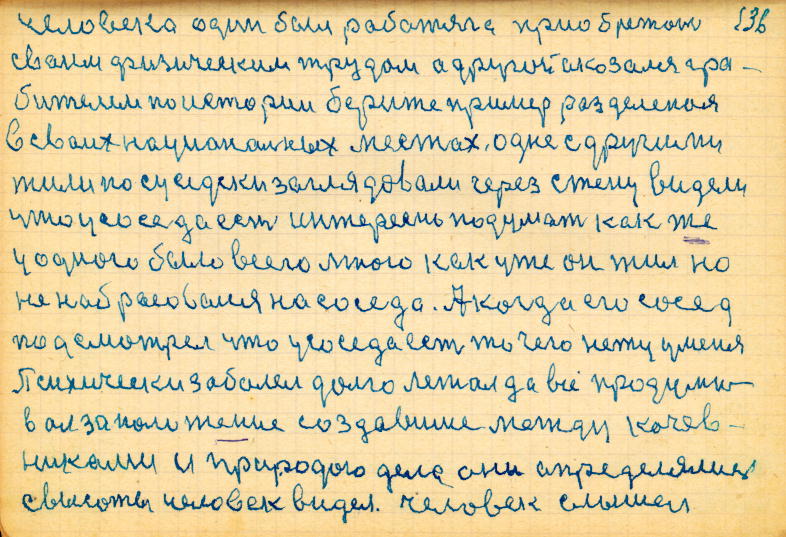 человека один был работяга приобретал 136
своим физическим трудом а другой оказался гра-
бителем по истории берите пример разделения
в своих национальных местах, одне с другими
жили по суседски заглядовали через стену видели
что у соседа ест интересно подумат как же
у одного было всего много как уже он жил но
не набрасовался на соседа. А когда его сосед
подсмотрел что у соседа ест то чего нету у меня
Психически заболел долго лежал да всё продумы-
вал за положение создавшие между кочев-
никами и природою дела они определялись
с высоты человек видел. Человек слышел